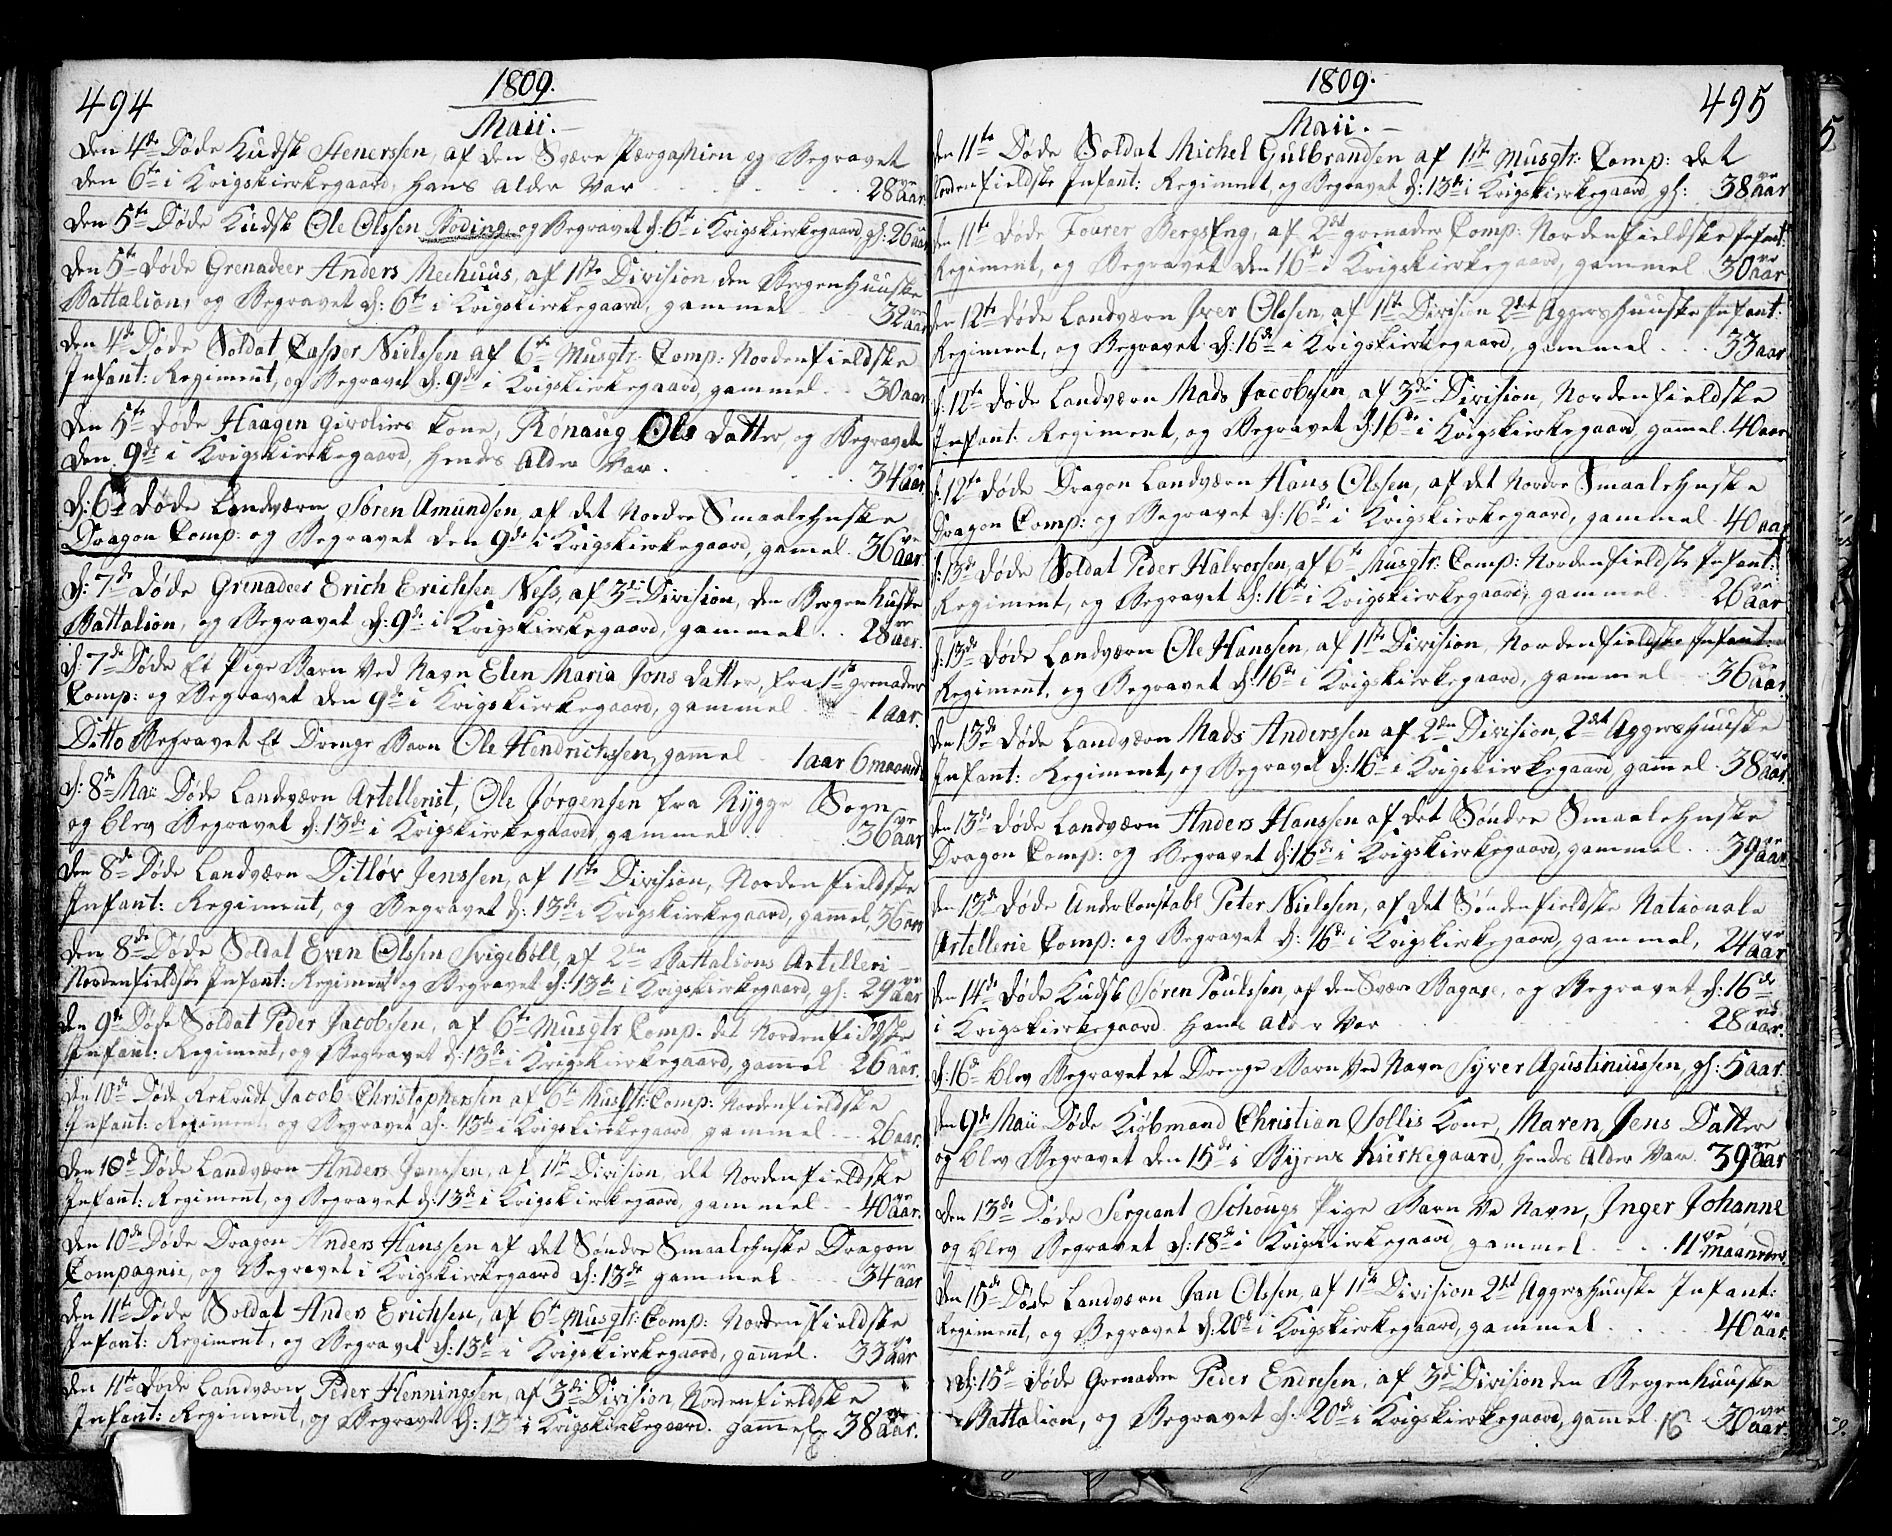 494
1809.
Maii.
Den 4de Døde Kudsk Stenerssen, af den Svære og Begravet
den 6te i Krigskierkegaard, hans alder var 28 aar
den 5te Døde Kudsk Ole Olssen Roding og Begravet d: 6te i Krigskierkegaard, gl: 26 aar
den 5te døde Grenadeer Anders Meehuus, af 1ste Division den Bergenhuuske
Battalion, og Begravet d: 6te i Krigskierkegaard, gammel 32 aar
den 4de Døde Soldat Casper Nielssen af 6te Musqtr: Comp: Nordenfieldske
Infant: Regiment, og Begravet d: 9de i Krigskierkegaard, gammel 30 aar
den 5te døde Haagen kone, Rønaug Ols datter, og Begravet
den 9de i Krigskierkegaard, hendes alder var 34 aar.
d: 6te døde Landværn Søren Amundsen, af det Nordre Smaalehnske
Dragon Comp: og Begravet den 9de i Krigskierkegaard, gamel 36 aar.
d: 7de døde Grenadeer Erich Erichsen Ness, af 3die Division, den Bergenhuske
Battalion, og Begravet d: 9de i Krigskierkegaard, gammel 28 aar.
d: 7de Døde Et Pige Barn Ved Navn Elen Maria Jons datter, fra 1ste grenadeer
Comp: og Begravet den 9de i Krigskierkegaard, gammel 1 aar.
Ditto Begravet Et Drenge Barn Ole Hendrichssen, gamel 1 aar 6 maaned
d: 8de Mai Døde Landværn Artellerist, Ole Jørgensen fra Rygge Sogn
og blev Begravet d: 13de i Krigskierkegaard, gammel 36 aar
den 8de Døde Landværn Ditløv Jenssen, af 1ste Division, Nordenfieldske
Infant: Regiment, og Begravet d: 13de i Krigskierkegaard, gammel, 36 aar
den 8de Døde Soldat Even Olssen Svigebøll, af 2den Battalions Artelleri
Nordenfieldske Infant: Regiment og Begravet d: 13de i Krigskierkegaard, gl: 29 aar
den 9de Døde Soldat Peder Jacobssen, af 6te Musqtr Comp: det Nordenfieldske
Infant: Regiment, og Begravet d: 13de i Krigskierkegaard, gammel 26 aar.
den 10de Døde Rekrudt Jacob Christophersen af 6te Musqtr: Comp: Nordenfieldske
Infant: Regiment, og Begravet d: 13de i Krigskierkegaard gammel 26 aar.
den 10de Døde Landværn Anders Jonssen, af 1ste Division det Nordenfieldske
Infant: Regiment, og Begravet d: 13de i Krigskierkegaard, gammel 40 aar.
den 10de Døde Dragon Anders Hanssen af det Søndre Smaalehnske Dragon
Compagnie, og Begravet i Krigskierkegaard d: 13de gammel 34 aar
den 11te Døde Soldat Anders Erichsen, af 6te Musqtr: Comp: Nordenfieldske
Infant: Regiment, og Begravet d: 13de i Krigskierkegaard, gamel. 33 aar
den 11te Døde Landværn Peder Henningssen, af 3die Division Nordenfieldske
Infant: Regiment, og Begravet d: 13de i Krigskierkegaard. gammel 38 aar.
1809.
495
Maii.
den 11te Døde Soldat Michel Gulbrandsen af 1ste Musqtr: Comp: det
Nordenfieldske Infant: Regiment, og Begravet d: 13de i Krigskierkegaard, gl: 38 aar
den 11te døde Fourer Bergseng, af 2det grenadeer Comp: Nordenfieldske Infant:
Regiment, og Begravet den 16te i Krigskierkegaard, gammel 30 aar
den 12te døde Landværn Iver Olssen, af 1ste Division 2det Aggershuuske Infant:
Regiment, og Begravet d: 16de i Krigskierkegaard, gammel 33 aar
d: 12te døde Landværn Mads Jacobsen, af 3die Division, Nordenfieldske
Infant: Regiment, og Begravet d: 16de i Krigskierkegaard, gamel. 40 aar
d: 12te døde Dragon Landværn Hans Olssen, af det Nordre Smaalehnske
Dragon Comp: og Begravet d: 16de i Krigskierkegaard, gammel 40 aar
d: 13de døde Soldat Peder Halvorsen, af 6te Musqtr: Comp: Nordenfieldske Infant:
Regiment, og Begravet d: 16de i Krigskierkegaard, gammel 26 aar
d: 13de døde Landværn Ole Hanssen, af 1ste Division, Nordenfieldske Infant:
Regiment, og Begravet d: 16de i Krigskierkegaard, gammel 36 aar.
den 13de døde Landværn Mads Anderssen af 2den Division, 2det Aggershuuske
Infant: Regiment, og Begravet d: 16de i Krigskierkegaard, gammel. 38 aar.
den 13de Døde Landværn Anders Hanssen af det Søndre Smaalehnske
Dragon Comp: og Begravet d: 16de i Krigskierkegaard, gammel. 39 aar.
den 13de døde UnderConstabl Peter Nielssen, af det Søndenfieldske Nationale
Artellerie Comp: og Begravet d: 16de i Krigskierkegaard, gammel, 24 aar
den 14de døde Kudsk Søren Poulssen, af den Svære Bagage, og Begravet d: 16de
i Krigskierkegaard. Hans alder Var 28 aar.
d: 16de blev Begravet et Drenge Barn Ved Navn Syver Agustiniussen, gl: 5 aar.
den 9de Maii Døde Kiøbmand Christian Sollis Kone, Maren Jens Datter
og blev Begravet den 15de i Byens Kierkegaard, hendes alder Var. 39 aar
den 13de Døde Sergeant Schougs Pige Barn Ve Navn, Inger Johanne
og blev Begravet d: 18de i Krigskierkegaard gammel 11 maaneder
den 15de Døde Landværn Jan Olssen, af 1ste Division 2det Aggershuuske Infant:
Regiment, og Begravet d: 20de i Krigskierkegaard, gammel 40 aar.
d: 15de døde Grenadeer Peder Endresen, af 3die Division den Bergenhuuske
Battalion, og Begravet d: 20de i Krigskierkegaard, gammel. 30 aar.
16